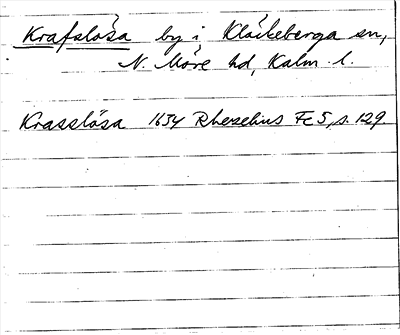 Krafslösa by i Kläckeberga sn,
N. Möre hd, Kalm. l.
Krasslösa 1634 Rhezelius FE 5, s. 129.